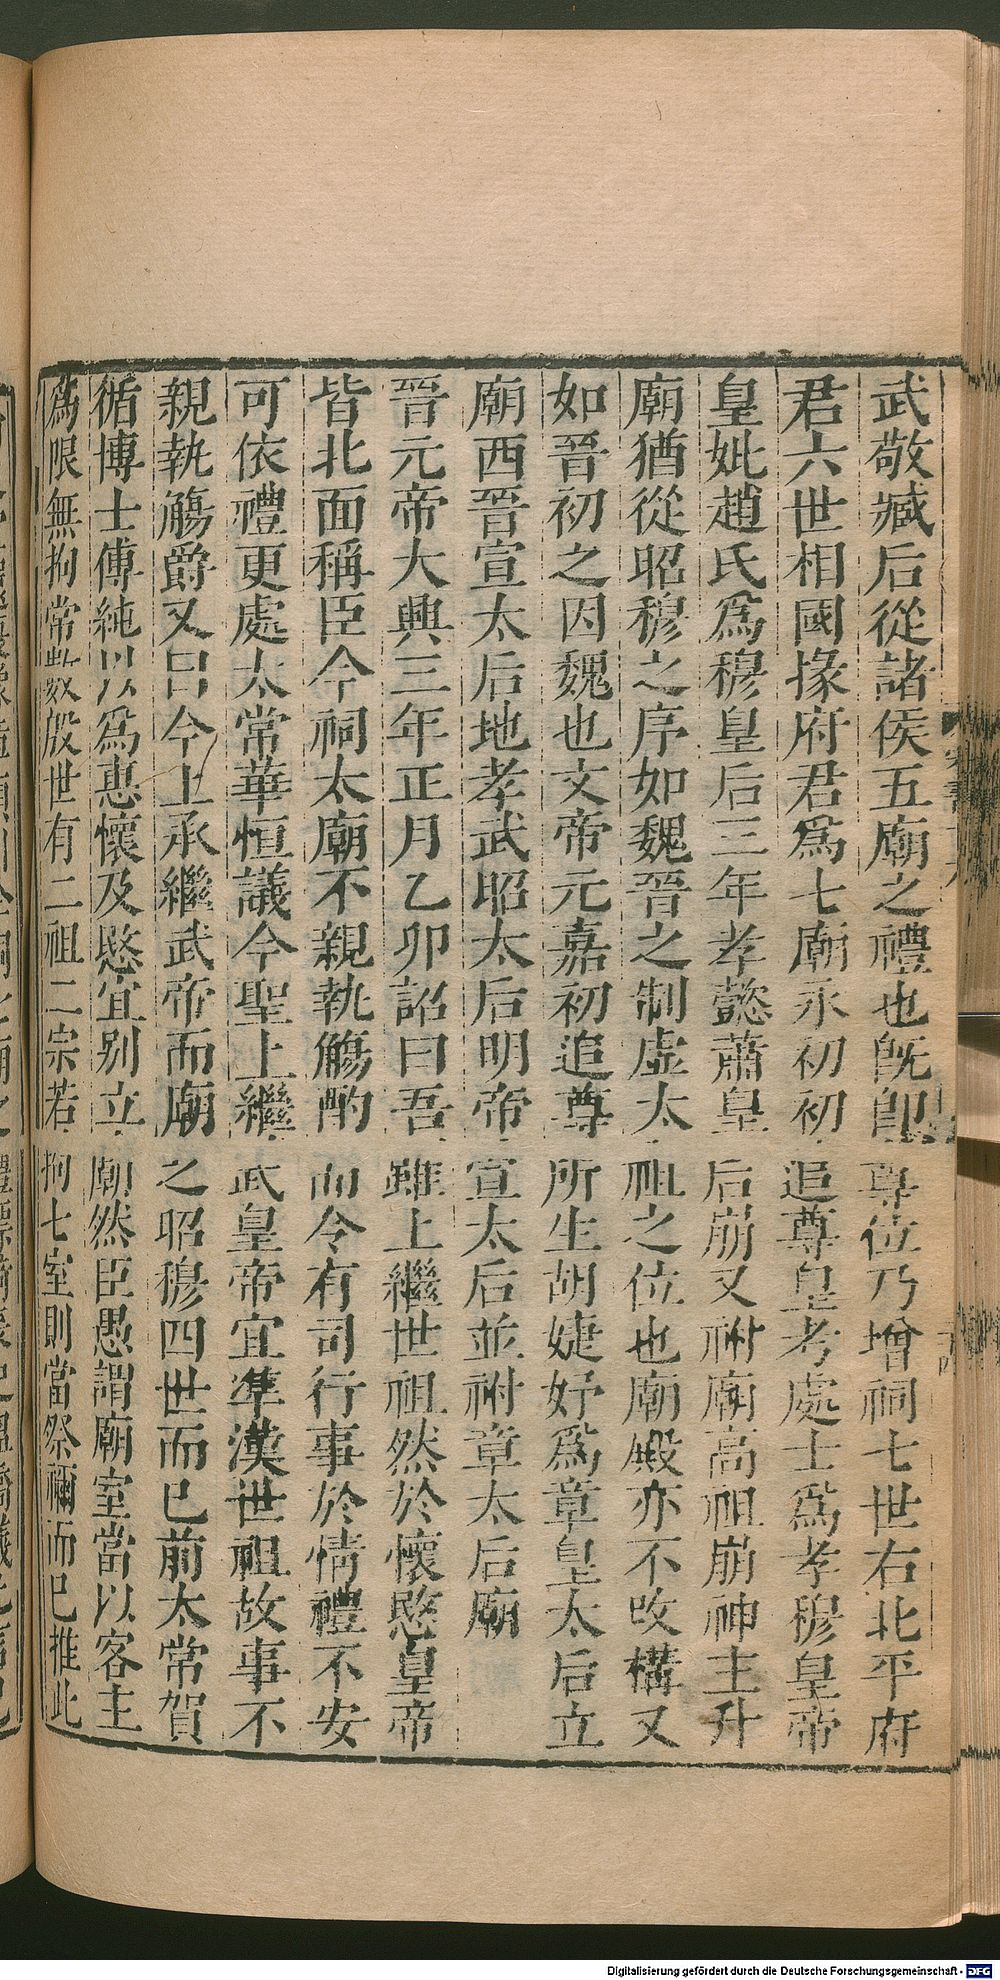 武敬臧后從諸侯五廟之禮也既卽尊位乃增祠七世右北平府
君六世相國掾府君爲七廟永初初追尊皇考處士爲孝穆皇帝
皇妣趙氏爲穆皇后三年孝懿蕭皇后崩又祔廟高祖崩神主升
廟猶從昭穆之序如魏晉之制虛太祖之位也廟殿亦不改構又
如晉初之因魏也文帝元嘉初追尊所生胡婕妤爲章皇太后立
廟西晉宣太后地孝武昭太后明帝宣太后並祔章太后廟
晉元帝大興三年正月乙卯詔曰吾雖上繼世祖然於懷愍皇帝
皆北面稱臣今祠太廟不親執觴酌而令有司行事於情禮不安
可依禮更處太常華恒議今聖上繼武皇帝宜準漢世祖故事不
親執觴爵又曰今上承繼武帝而廟之昭穆四世而已前太常賀
循博士傅純以爲惠懷及愍宜别立廟然臣愚謂廟室當以客主
爲限無拘常數殷世有二祖二宗若拘七室則當祭禰而已推此
Digitalisierung gefördert durch die Deutsche Forschungsgemeinschaft - DFG